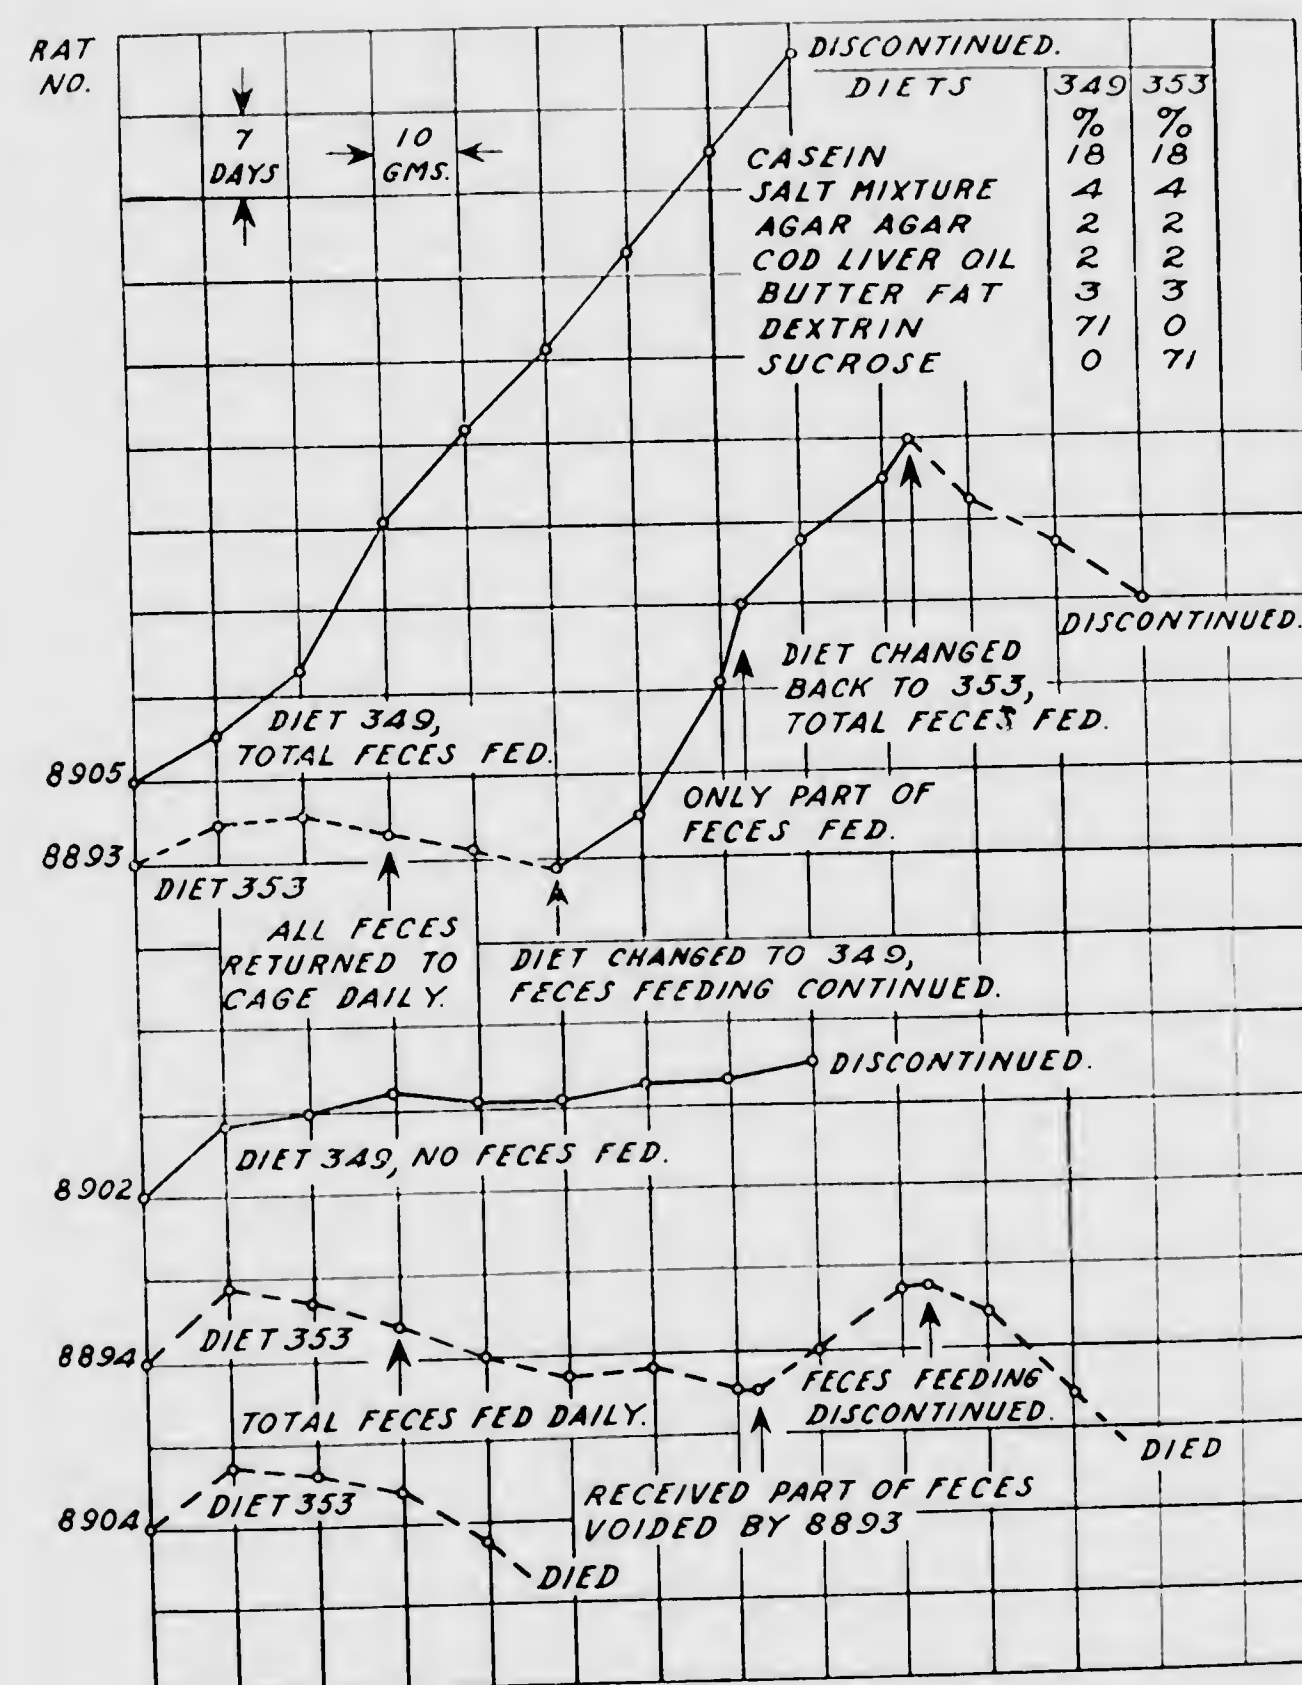 RAT
NO.
7
DAYS
10
GMS.
DISCONTINUED.
DIETS 349 353
% %
CASEIN 18 18
SALT MIXTURE 4 4
AGAR AGAR 2 2
COD LIVER OIL 2 2
BUTTER FAT 3 3
DEXTRIN 71 0
SUCROSE 0 71
DISCONTINUED.
DIET CHANGED
BACK TO 353,
TOTAL FECES FED.
DIET 349,
TOTAL FECES FED.
8905
ONLY PART OF
FECES FED.
8893
DIET 353
ALL FECES
RETURNED TO
CAGE DAILY.
DIET CHANGED TO 349,
FECES FEEDING CONTINUED.
DISCONTINUED.
DIET 349, NO FECES FED.
8902
DIET 353
8894
FECES FEEDING
DISCONTINUED.
TOTAL FECES FED DAILY.
DIED
DIET 353
8904
RECEIVED PART OF FECES
VOIDED BY 8893
DIED